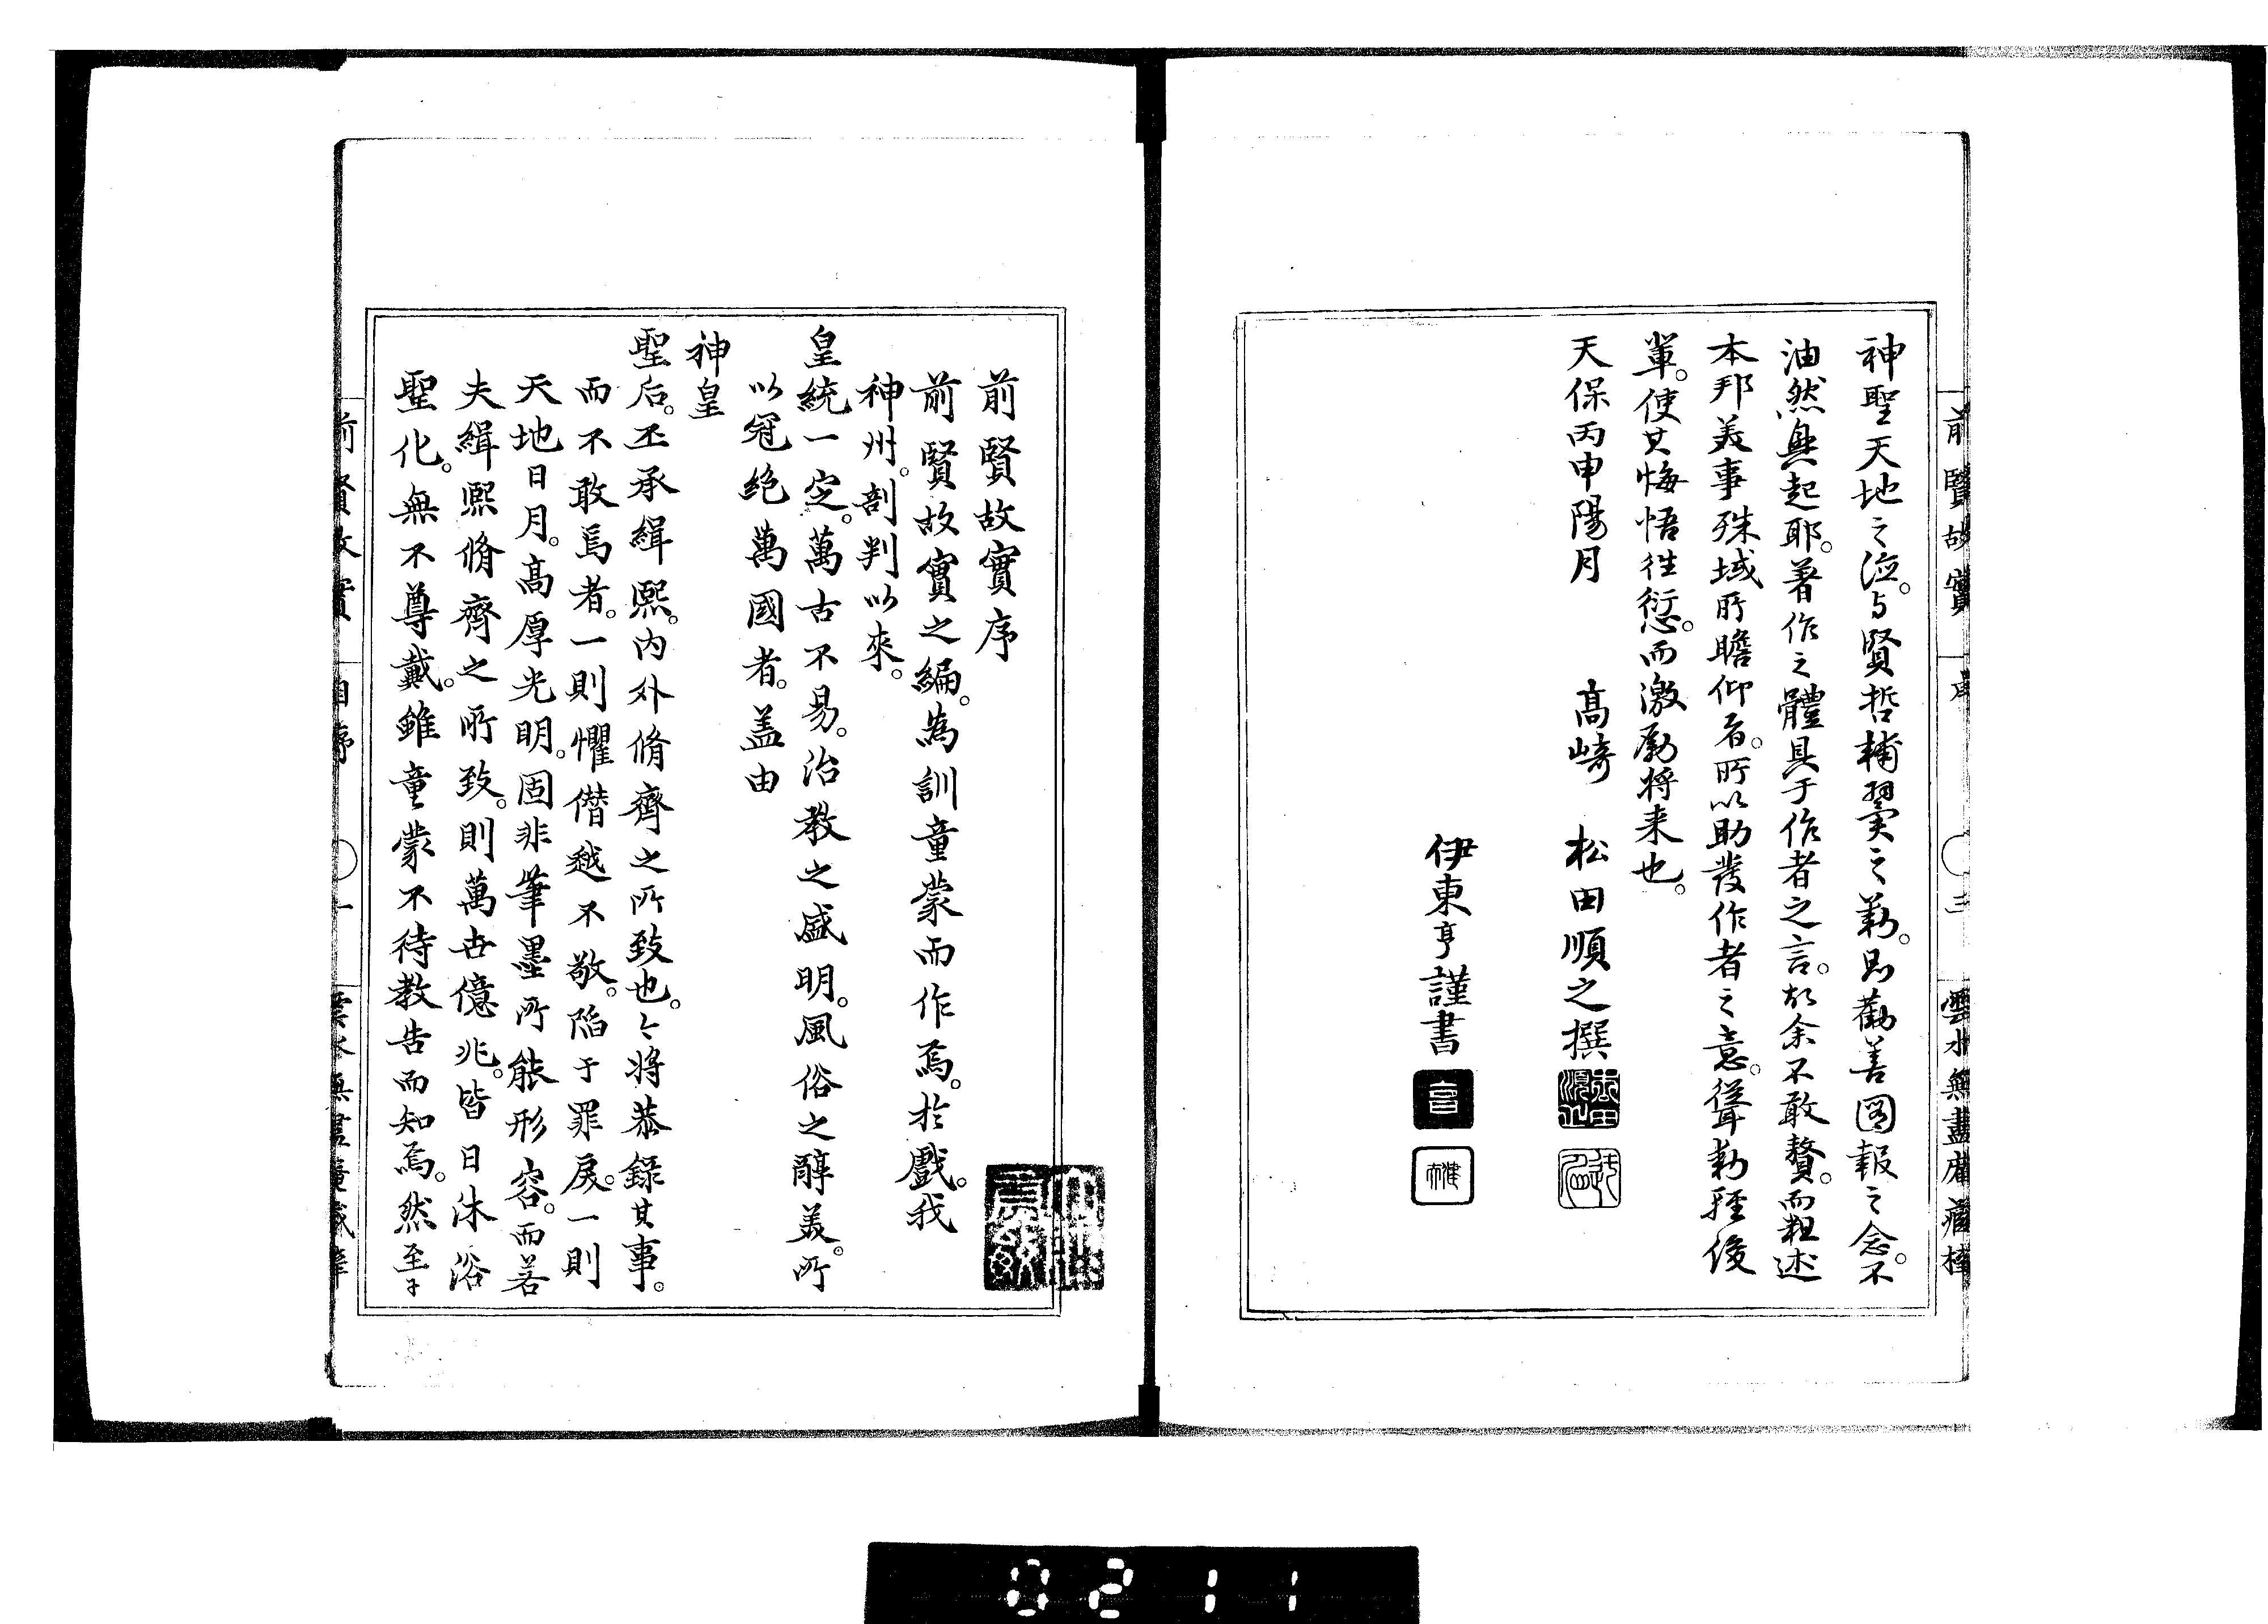 前賢故實 序 〇三 雲水無盡庵藏梓
神聖天地之泣。与賢哲補翼之勤。則勸善圖報之念。不
油然興起耶。著作之體具于作者之言。故余不敢贅。而粗述
本邦美事殊域所瞻仰者。所以助發作者之意。聳勅輕俊
輩。使其悔悟往愆。而激勵将来也。
天保丙申陽月 高崎 松田順之撰
伊東亨謹書
前賢故實序
前賢故實之編。為訓童蒙而作焉。於戲。我
神州。剖判以來。
皇統一定。萬古不易。治教之盛明。風俗之醇美。所
以冠絶萬國者。盖由
神皇
聖后。丕承緝熙。内外脩齊之所致也。今將恭録其事。
而不敢焉者。一則懼僭越不敬。陷于罪戻。一則
天地日月。高厚光明。固非筆墨所能形容。而若
夫緝熙脩齊之所致。則萬世億兆。皆日沐浴
聖化。無不尊戴。雖童蒙不待教告而知焉。然至于
前賢故實 自序 〇一 雲水無盡庵藏梓
0211